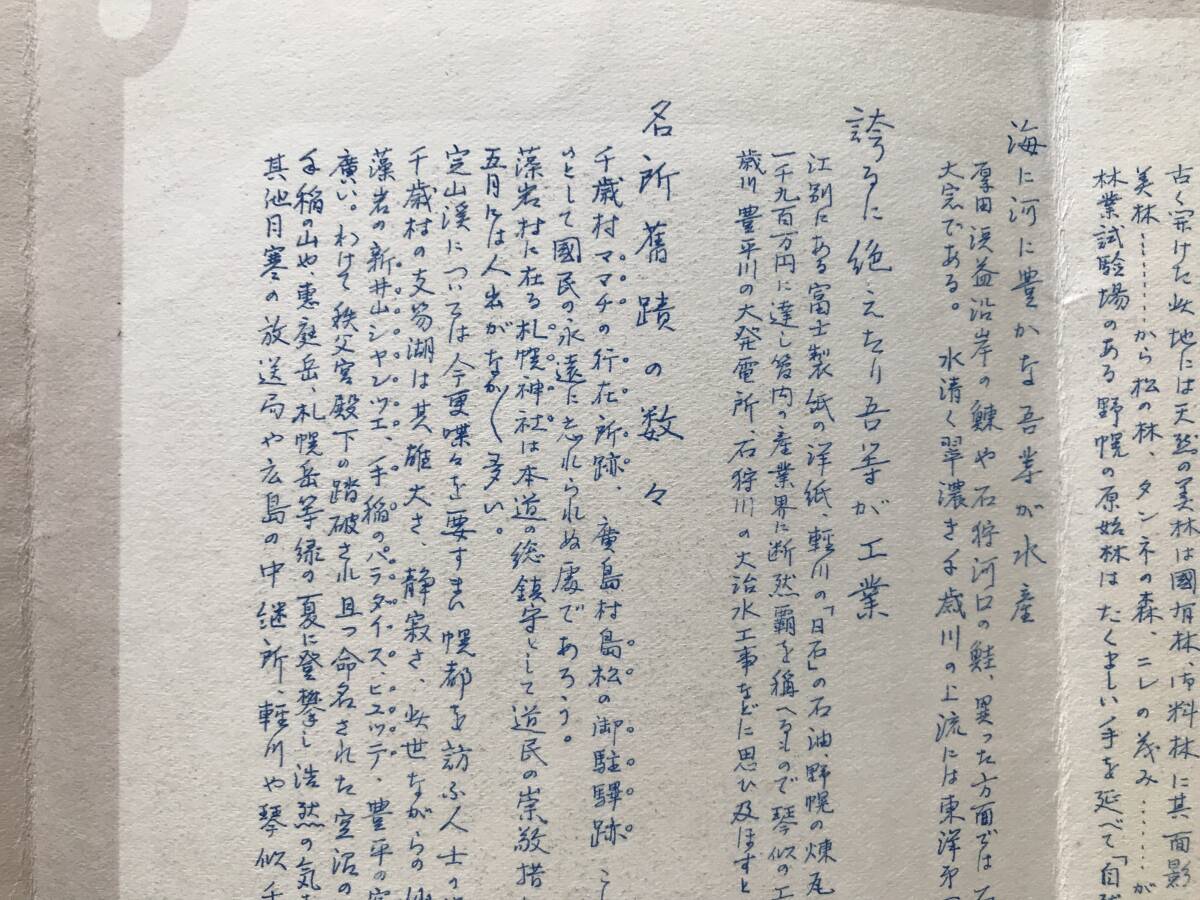 古く開けた此地には天然の美林は國有林、御料林に其面影
美林………から松の林、タンネの森、ニレの茂み………が
林業試験場のある野幌の原始林はたくましい手を延べて「自然
海に河に豊かな吾等が水産
厚田浜益沿岸の鰊や石狩河口の鮭、異った方面では石
大宗である。水清く翠濃き千歳川の上流には東洋第一
誇るに絶えたり吾等が工業
江別にある富士製紙の洋紙、軽川の「日石」の石油、野幌の煉瓦
一千九百万円に達し管内の産業界に断然覇を稱へるもので琴似の工
歳川豊平川の大発電所、石狩川の大治水工事などに思ひ及ほすと
名所舊蹟の数々
千歳村ママチの行在所跡、廣島村島松の御駐驛跡こ
のとして國民の永遠に忘れられぬ處であろう。
藻岩村に在る札幌神社は本道の総鎮守として道民の崇敬措
五月には人出がなか〱多い。
定山渓については今更喋々を要すまい幌都を訪ふ人士の
千歳村の支笏湖は其雄大さ、静寂さ、此世ながらの
藻岩の新井山シャンツェ、手稲のパラダイス、ヒュッテ、豊平の空
廣い。わけて秩父宮殿下の踏破され且つ命名された空沼の
手稲の山や、惠庭岳、札幌岳等緑の夏に登攀し浩然の気を
其他月寒の放送局や広島の中継所、軽川や琴似千